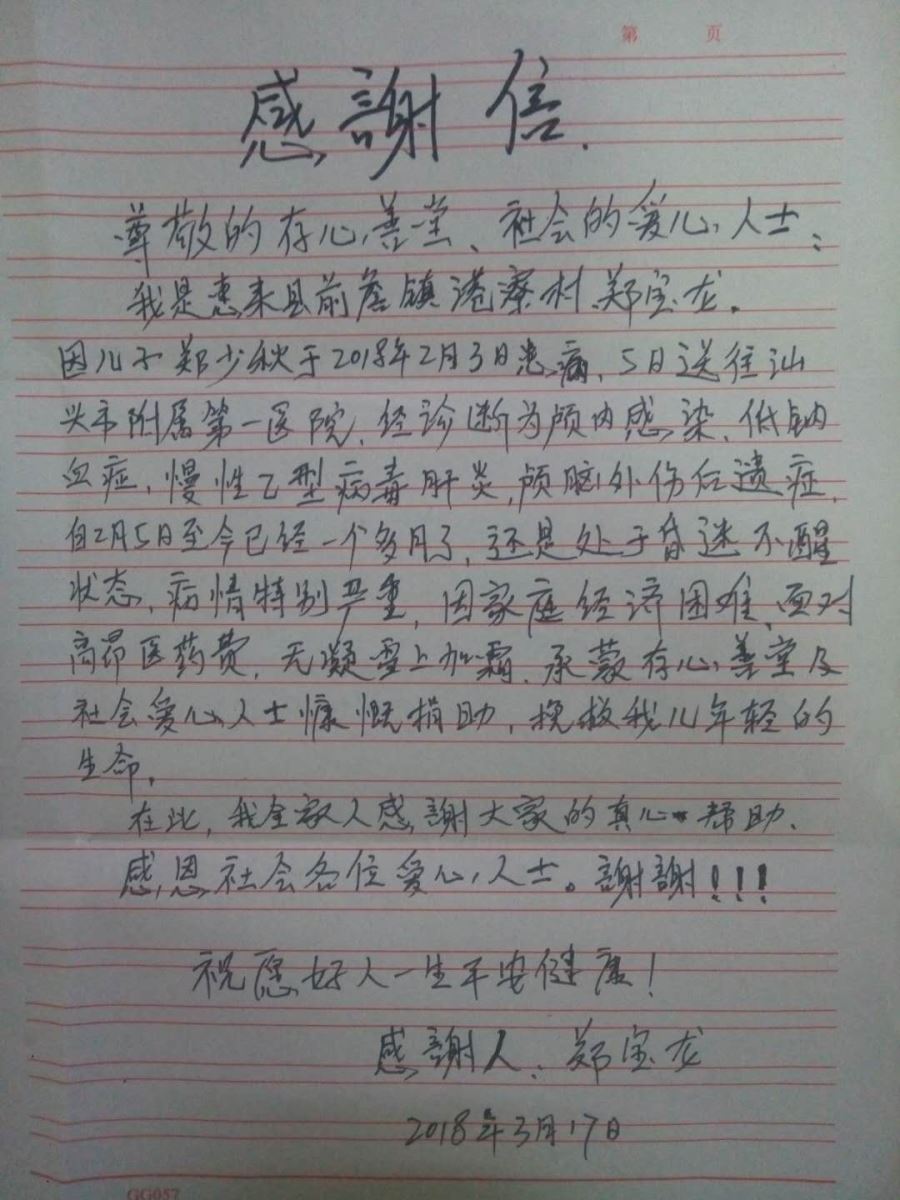 第 页
感謝信.
尊敬的存心善堂、社会的爱心人士:
我是惠来县前詹镇港寮村郑宝龙.
因儿子郑少秋于2018年2月3日患病,5日送往汕
头市附属第一医院,经诊断为颅内感染、低钠
血症,慢性乙型病毒肝炎,颅脑外伤后遗症,
自2月5日至今已经一个多月了,还是处于昏迷不醒
状态,病情特别严重,因家庭经济困难,面对
高昂医药费,无凝雪上加霜,承蒙存心善堂及
社会爱心人士慷慨捐助,挽救我儿年轻的
生命,
在此,我全家人感謝大家的真心帮助,
感恩社会各位爱心人士。謝謝!!!
祝愿好人一生平安健康!
感謝人:郑宝龙
2018年3月17日
GG057